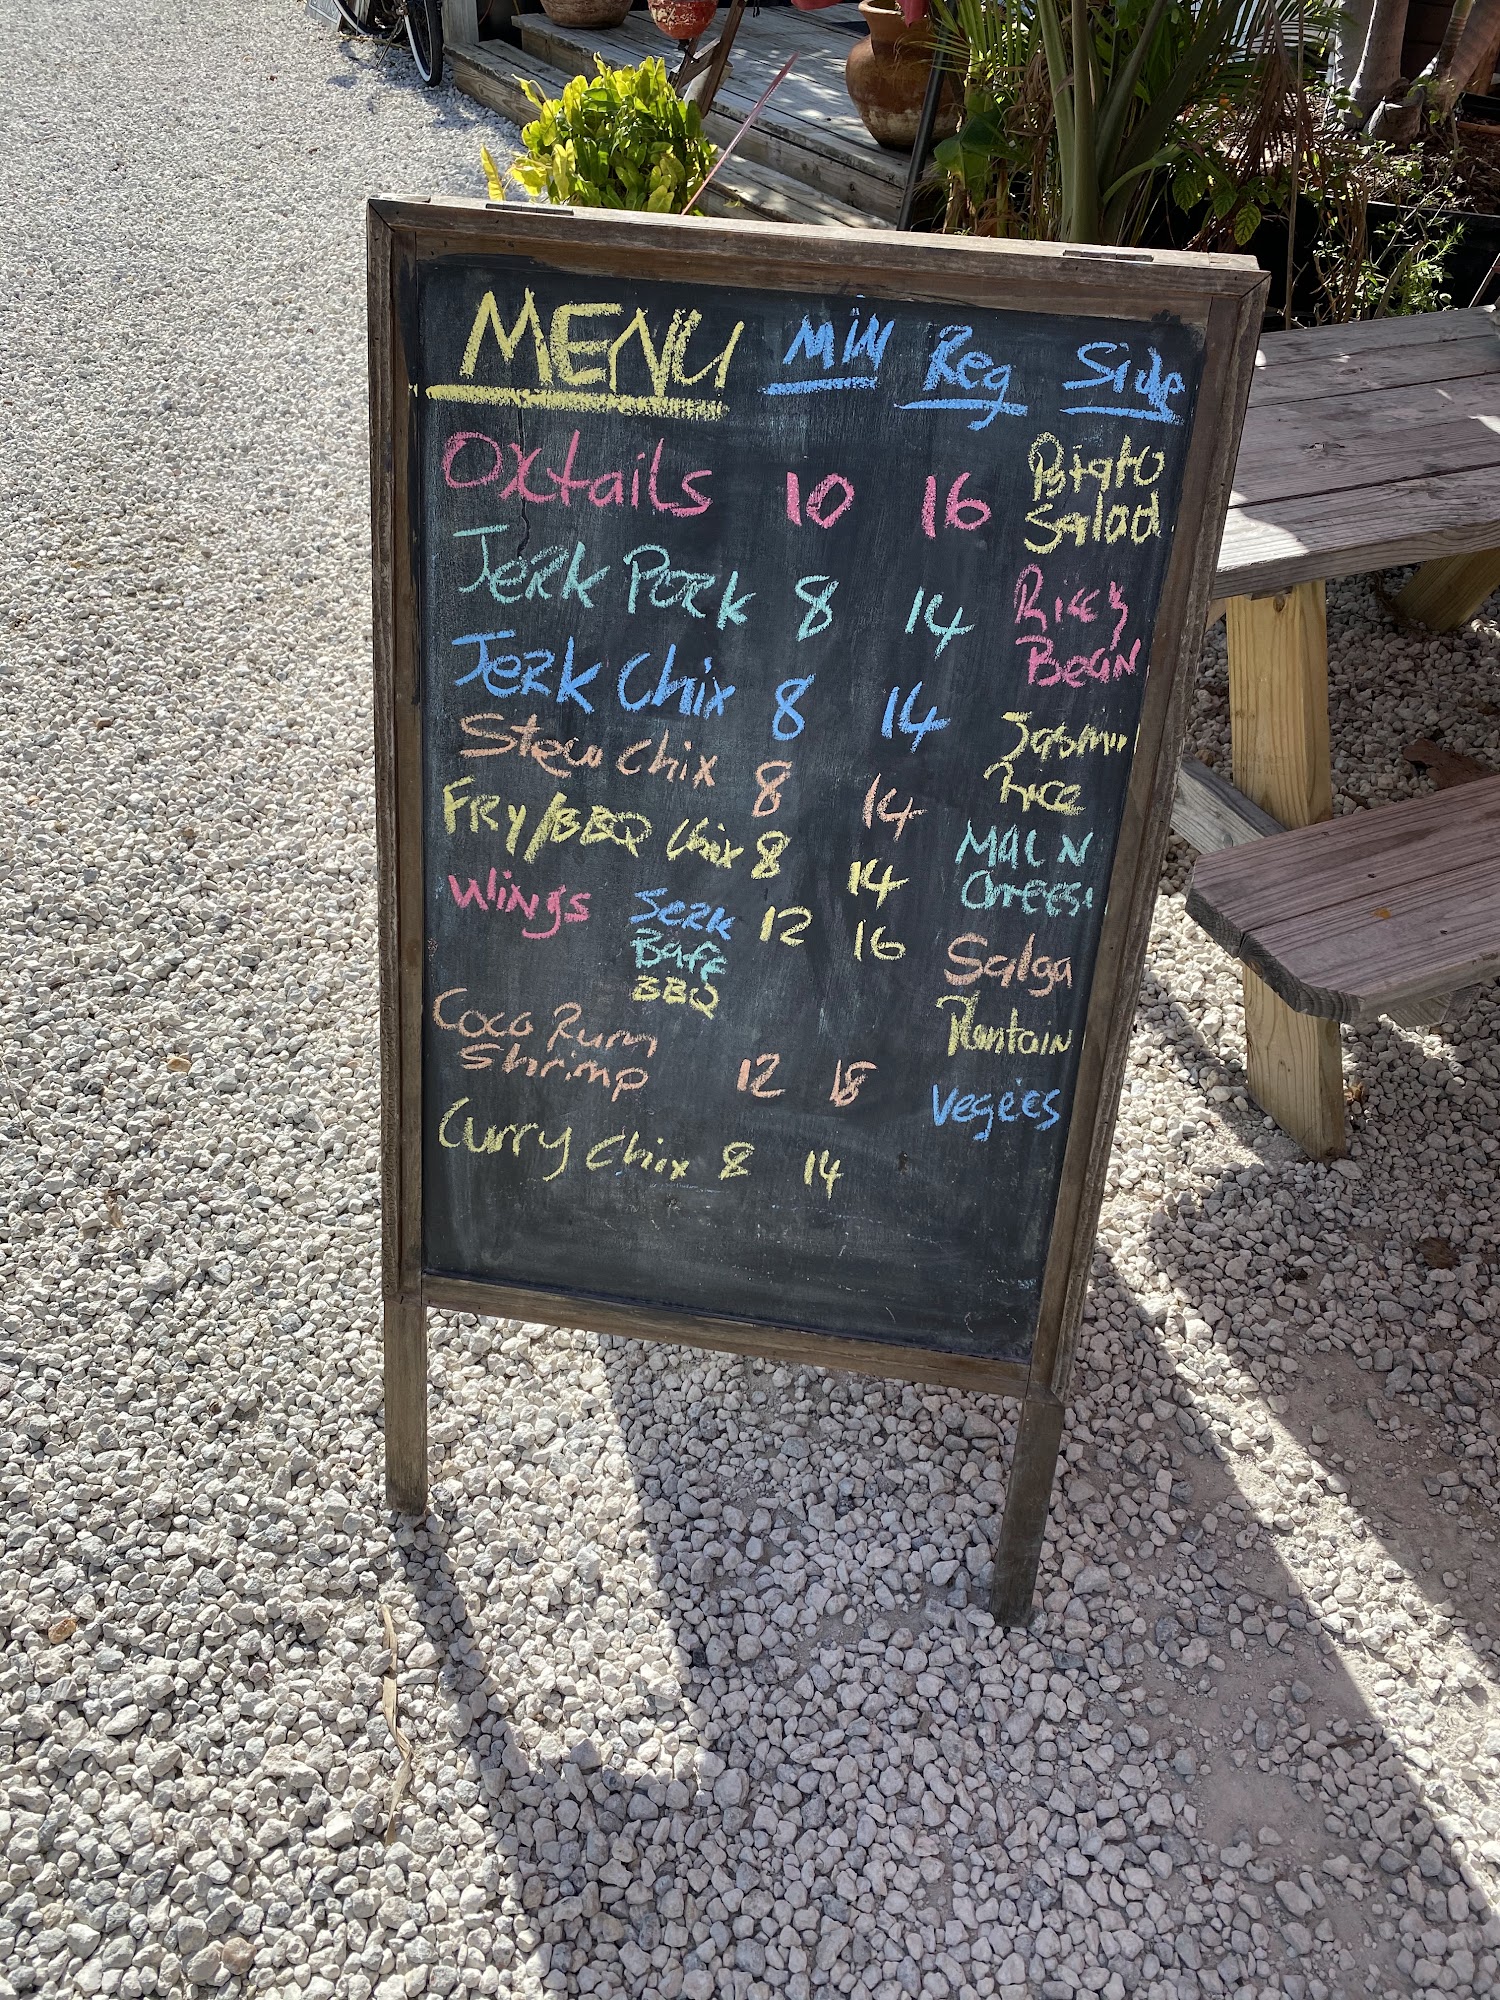 MENU Min Reg Side
Oxtails 10 16 Potato
Salad
Jerk Pork 8 14 Ricey
Bean
Jerk Chix 8 14
Stew Chix 8 14 Jasmin
Rice
Fry/BBQ Chix 8 14 Mac N
Cheese
Wings Jerk 12 16 Salga
Buff
BBQ Plantain
Coco Rum
Shrimp 12 18 Vegees
Curry Chix 8 14